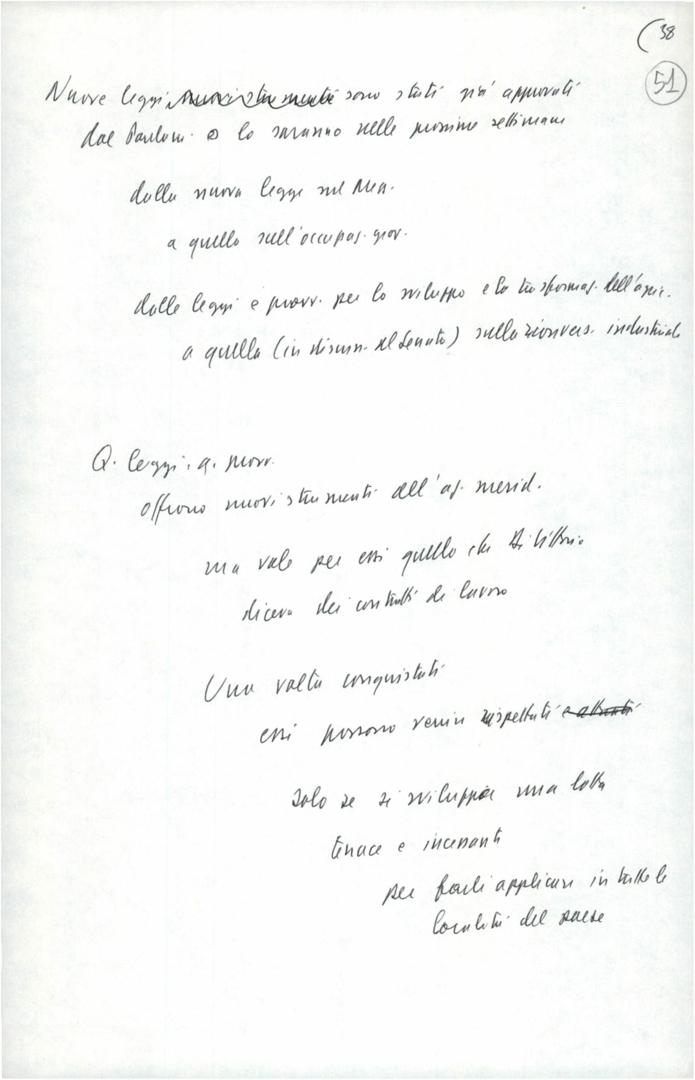 38
51
Nuove leggi nuovi strumenti sono stati già approvati
dal Parlam. o lo saranno nelle prossime settimane
dalla nuova legge sul Mez.
a quella sull'occupaz. giov.
dalle leggi e provv. per lo sviluppo e la trasformaz. dell'agric.
a quella (in discuss. al Senato) sulla riconvers. industriale
Q. leggi, q. provv.
offrono nuovi strumenti all'az. merid.
ma vale per essi quello che Di Vittorio
diceva dei contratti di lavoro
Una volta conquistati
essi possono venir rispettati e
solo se si sviluppa una lotta
tenace e incessante
per farli applicare in tutte le
località del paese